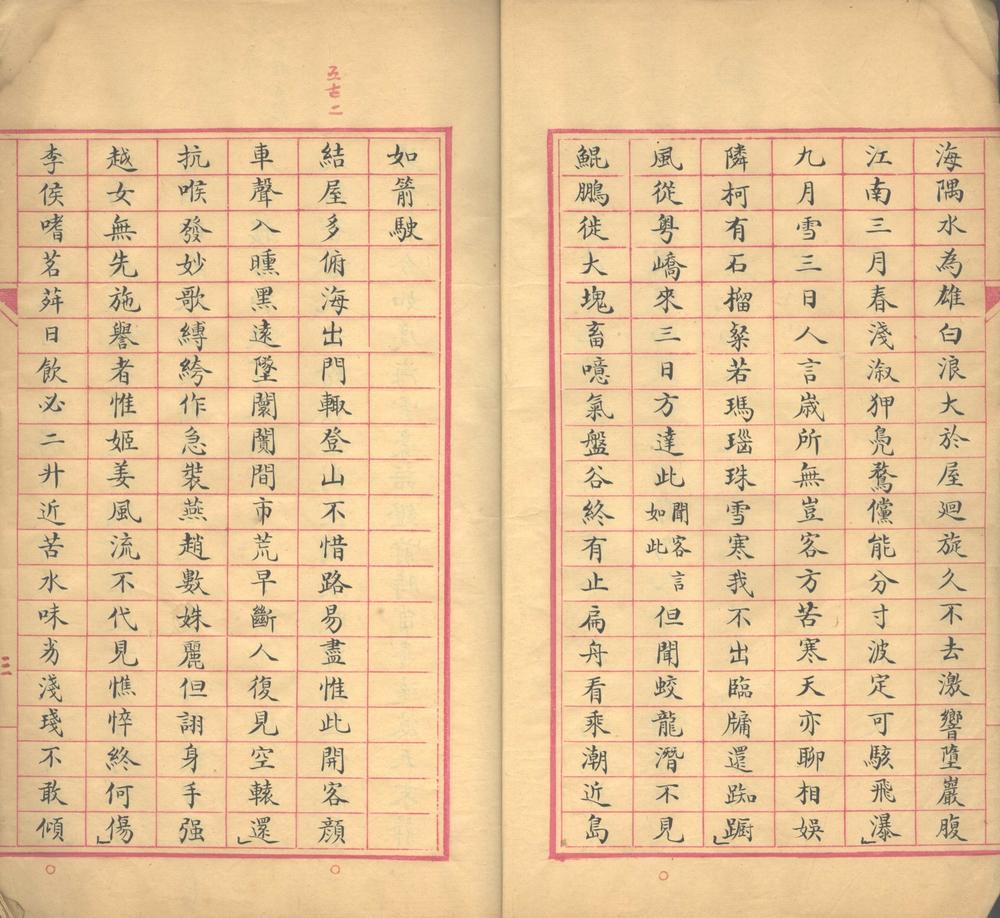 海隅水為雄白浪大於屋迴旋久不去激響墮巖腹
江南三月春淺淑狎鳧鶩儻能分寸波定可駭飛瀑」
九月雪三日人言歲所無豈客方苦寒天亦聊相娛
隣柯有石榴粲若瑪瑙珠雪寒我不出臨牖還踟蹰」
風從粵嶠來三日方達此聞客言如此但聞蛟龍潛不見
鯤鵬徙大塊畜噫氣盤谷終有止扁舟看乘潮近島
如箭駛
五七二
結屋多俯海出門輒登山不惜路易盡惟此開客顏
車聲入曛黑遠墜闤闠間市荒早斷人復見空轅還」
抗喉發妙歌縛絝作急裝燕趙數姝麗但詡身手强
越女無先施譽者惟姬姜風流不代見憔悴終何傷」
李侯嗜茗荈日飲必二升近苦水味劣淺琖不敢傾